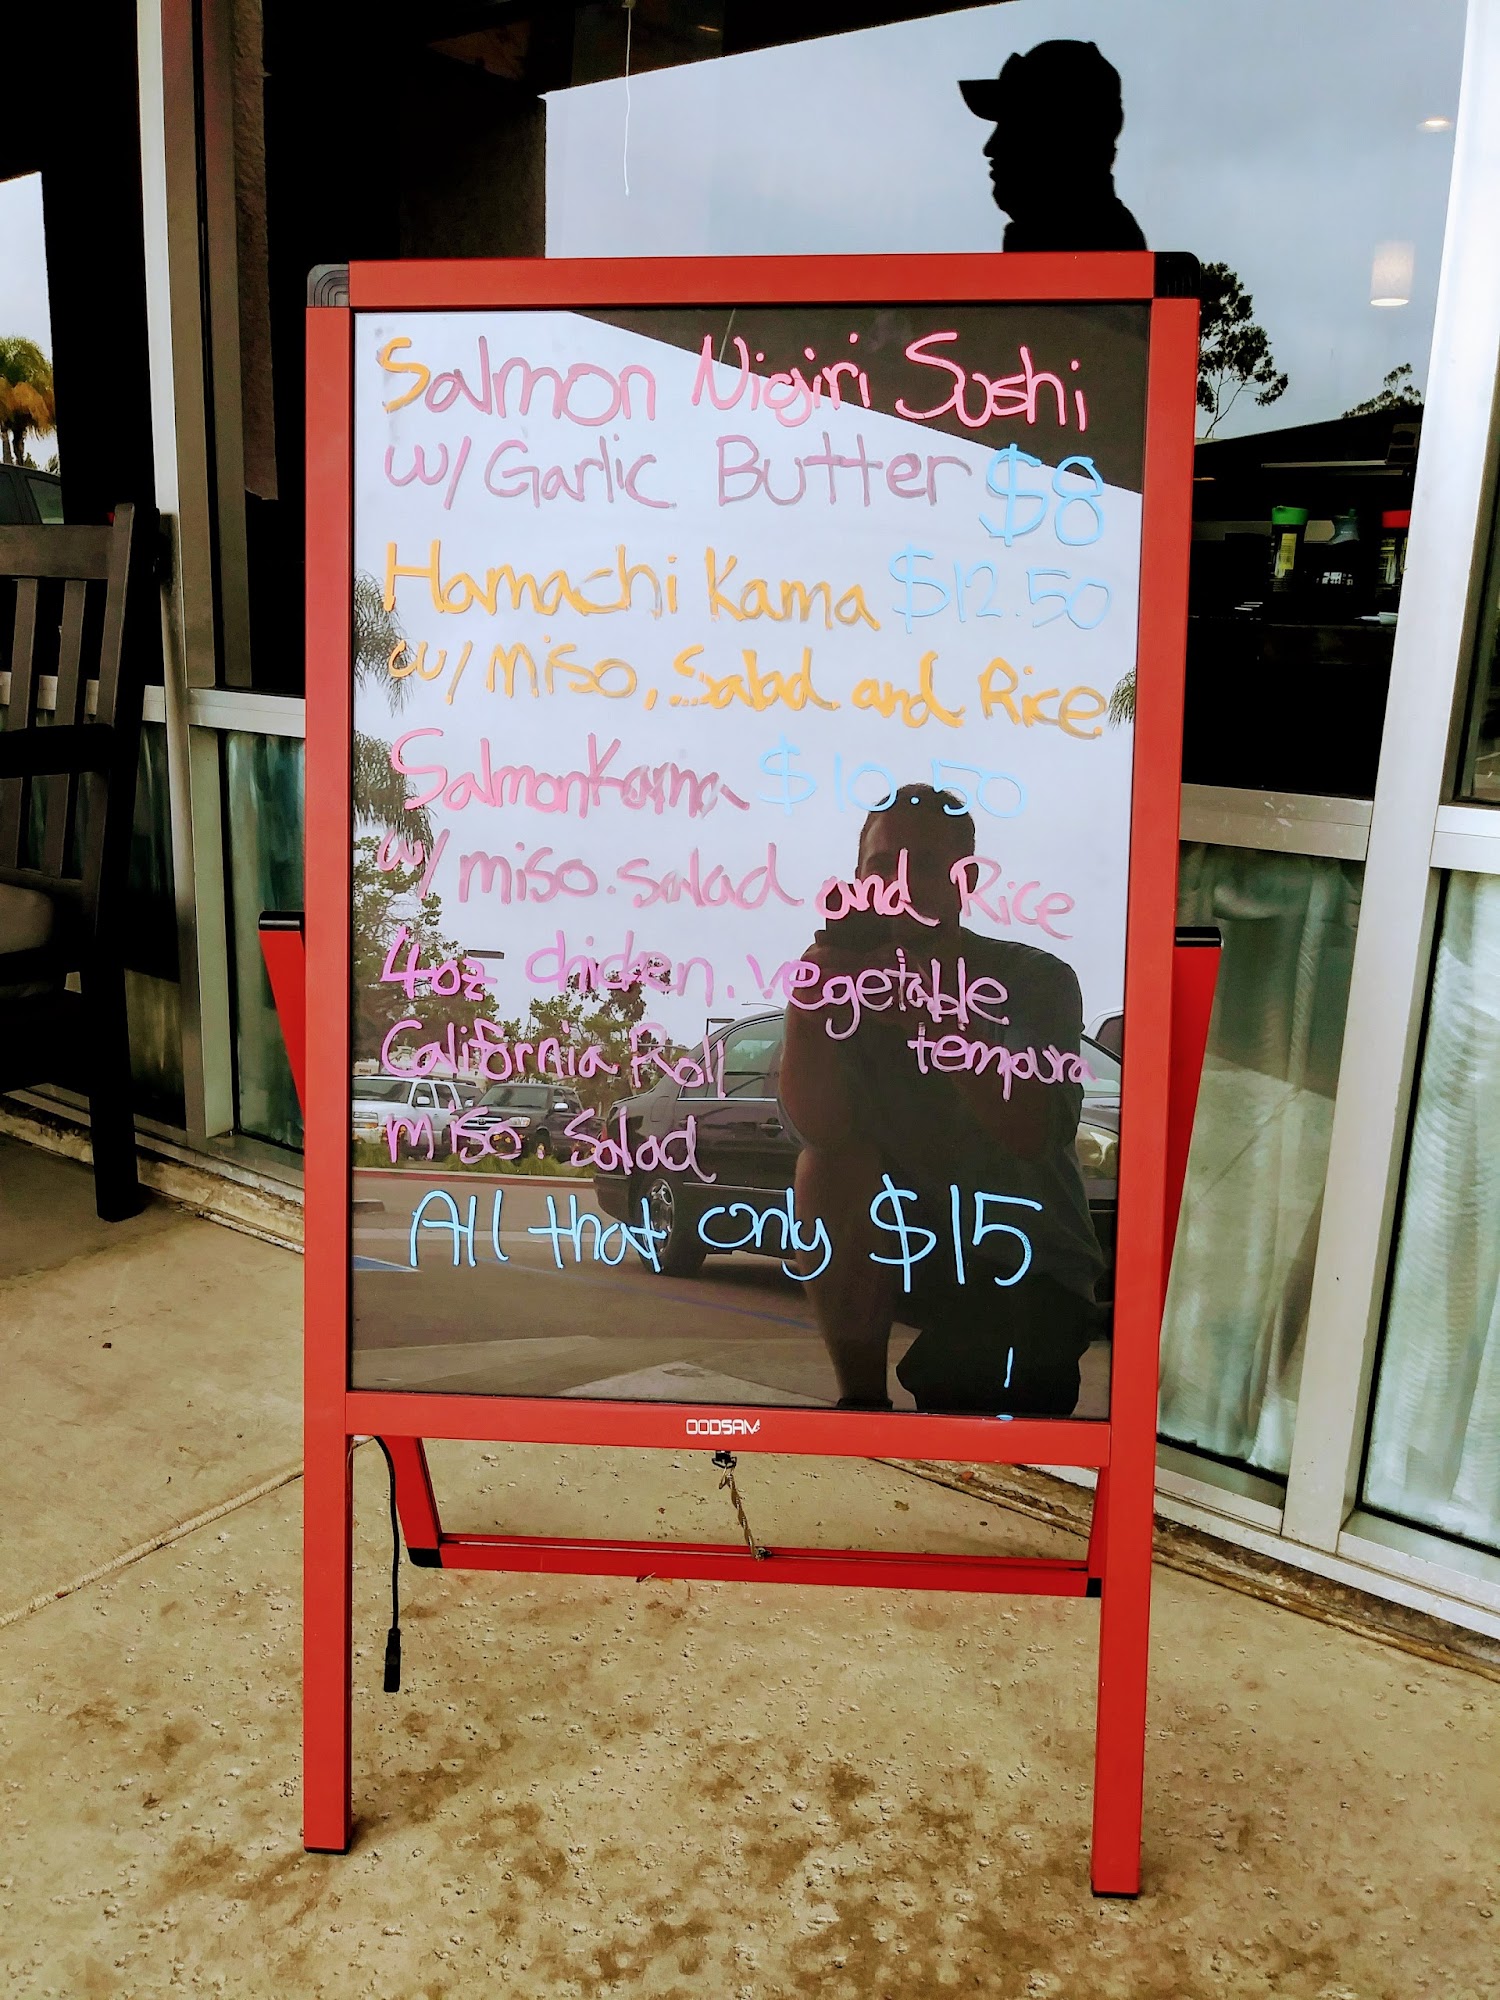 Salmon Nigiri Sushi
w/ Garlic Butter $8
Hamachi Kama $12.50
w/ miso, Salad and Rice
Salmon Kama $10.50
w/ miso. salad and Rice
4oz chicken. vegetable
California Roll tempura
miso. Salad
All that only $15
!
OODSAM